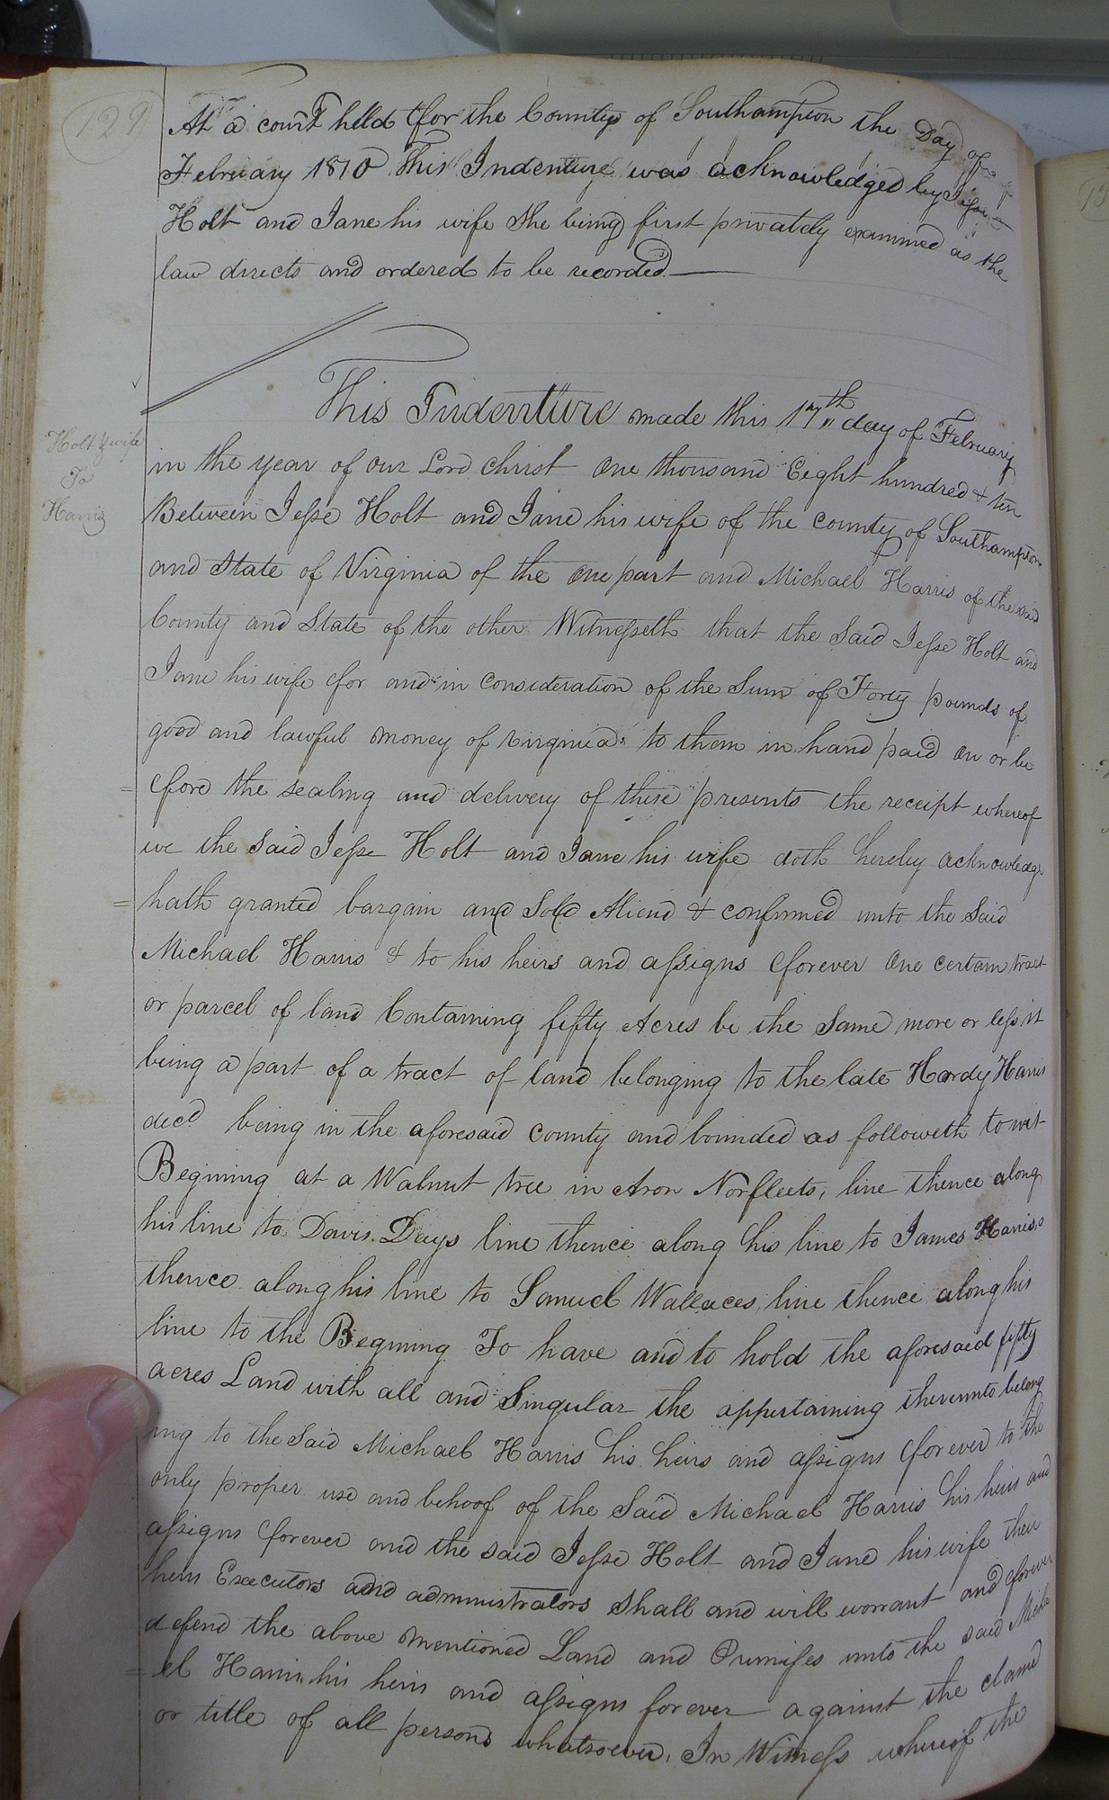 129
At a court held for the County of Southampton the Day of
February 1810 This Indenture was acknowledged by
Holt and Jane his wife She being first privately examined as the
law directs and ordered to be recorded
Holt & wife
To
Harris
This Indenture made this 17th day of February
in the year of our Lord christ one thousand Eight hundred & ten
Between Jesse Holt and Jane his wife of the county of Southampton
and State of Virginia of the one part and Michael Harris of the said
County and State of the other Witnesseth that the Said Jesse Holt and
Jane his wife for and in consideration of the Sum of Forty pounds of
good and lawful money of virginia to them in hand paid on or be
= fore the sealing and delivery of these presents the receipt whereof
we the Said Jesse Holt and Jane his wife doth hereby acknowledge
= hath granted bargain and Sold Aliend & confirmed unto the Said
Michael Harris & to his heirs and assigns forever One certain tract
or parcel of land Containing fifty Acres be the Same more or less it
being a part of a tract of land belonging to the late Hardy Harris
decd being in the aforesaid county and bounded as followeth to wit
Begining at a Walnut tree in Aron Norfleets, line thence along
his line to Davis Days line thence along his line to James Harris's
thence along his line to Samuel Wallaces, line thence along his
line to the Begining To have and to hold the aforesaid fifty
acres Land with all and Singular the appertaining thereunto belong
ing to the Said Michael Harris his heirs and assigns forever to the
only proper use and behoof of the Said Michael Harris his heirs and
assigns forever and the said Jesse Holt and Jane his wife their
heirs Executors and administrators Shall and will warrant and forever
defend the above mentioned Land and Premises unto the said Micha
= el Harris his heirs and assigns forever against the claim
or title of all persons whatsoever, In Witness whereof the